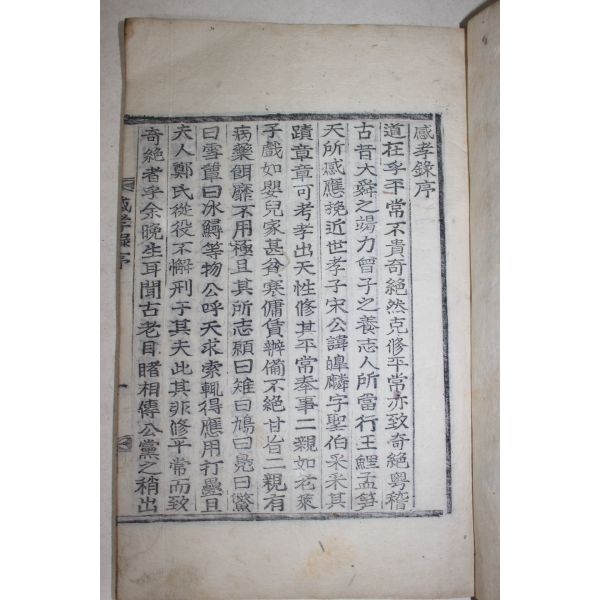 感孝錄序
道在乎平常不貴奇絶然克修平常亦致奇絶粤稽
古昔大舜之竭力曾子之養志人所當行王鯉孟笋
天所感應挽近世孝子宋公諱皥麟字聖伯采采其
蹟章章可考孝出天性修其平常奉事二親如老萊
子戱如嬰兒家甚貧寒傭賃辦備不絶甘旨二親有
病藥餌靡不用極且其所志願曰雉曰鳩曰鳧曰鱉
曰雪蕈曰冰鱘等物公呼天求索輒得應用打疊且
夫人鄭氏從役不懈刑于其夫此其非修平常而致
奇絶者乎余晩生耳聞古老目睹相傳公黨之稍出
感孝錄序
一